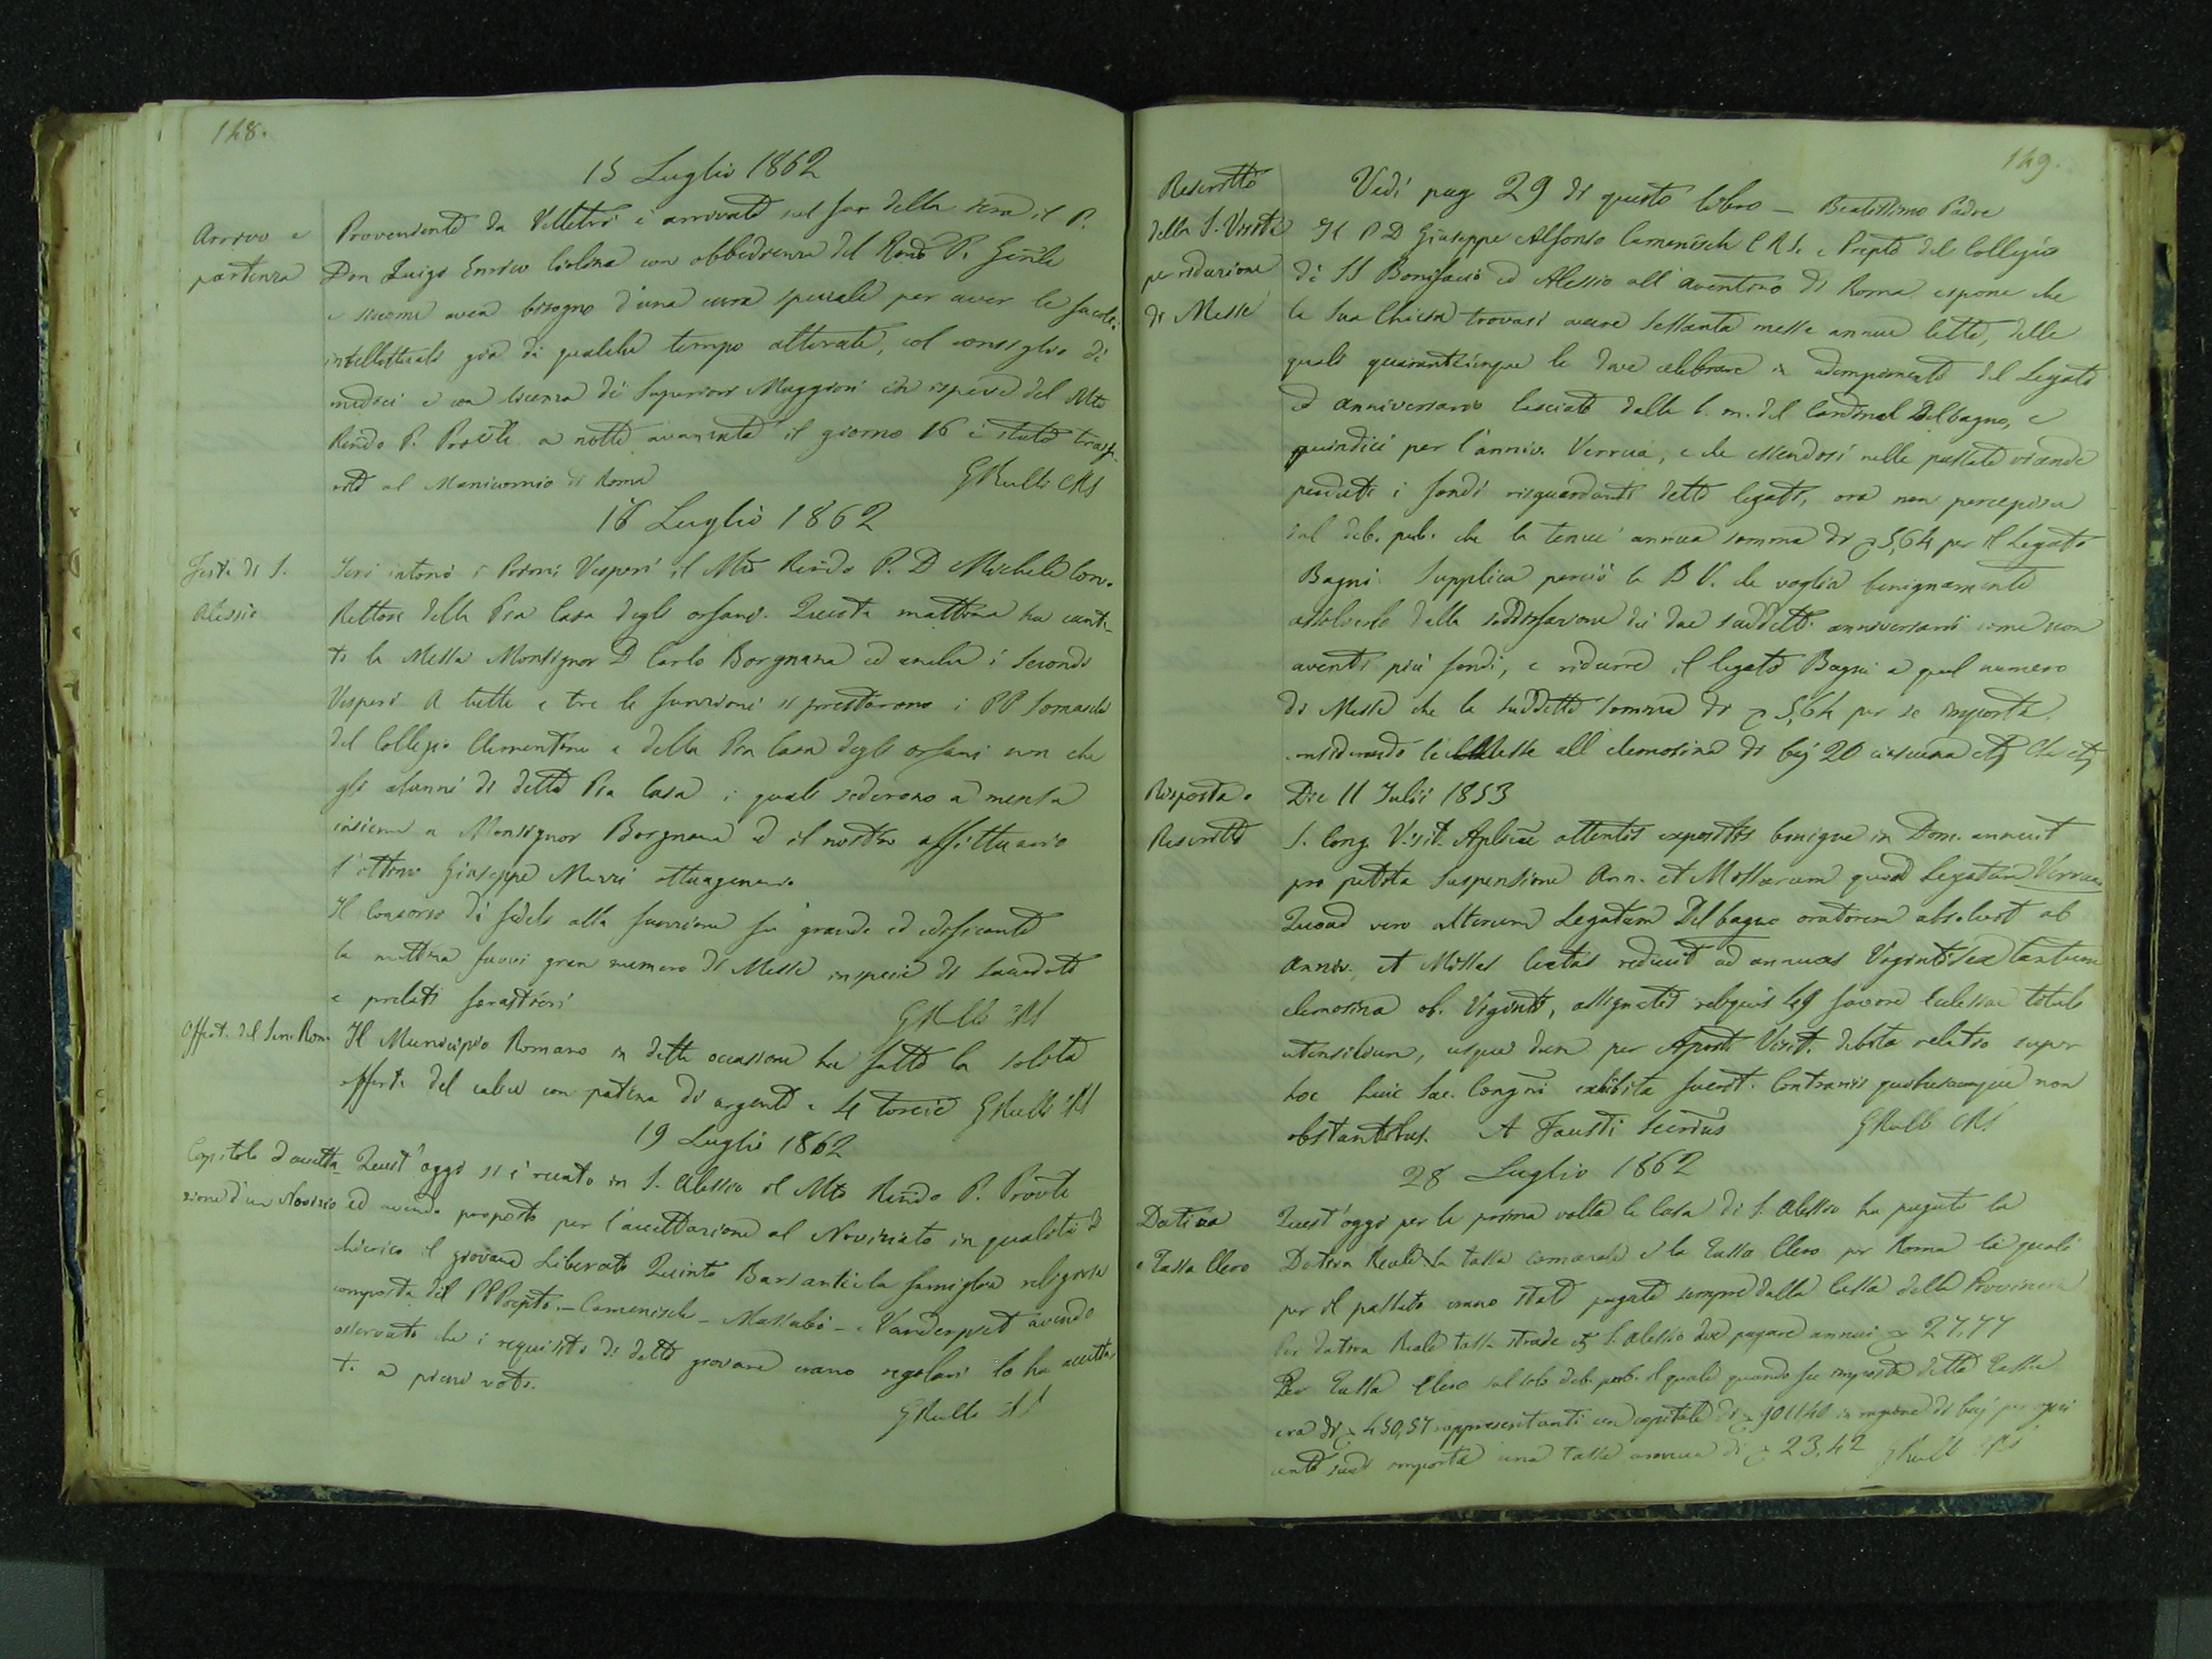 148.
15 Luglio 1862
Arrivo e
partenza
Proveniente da Velletri è arrivato sul far della sera il P.
Don Luigi Enrico Ciolina con obbedienza del Rmo P. Gnãle
e siccome avea bisogno d'una cura speciale per aver le facoltà
intellettuali già da qualche tempo alterate, col consiglio di
medici e con licenza dei Superiori Maggiori in specie del Mto
Rendo P. Proãle a notte avanzata il giorno 16 è stato trasfe-
rito al Manicomio di Roma GRulli CRS
18 Luglio 1862
Festa di S.
Alessio
Ieri intonò i Primi Vesperi il Mto Rendo P. D Michele
Rettore della Pia Casa degli orfani. Questa mattina ha canta-
to la Messa Monsignor D Carlo Borgnana ed anche i Secondi
Vesperi. A tutte e tre le funzioni si prestarono i PP Somaschi
del Collegio Clementino e della Pia Casa degli orfani non che
gli alunni di detta Pia Casa i quali sederono a mensa
insieme a Monsignor Borgnana ed il nostro affittuario
l'ottimo Giuseppe Merri ottuagenario
Il Concorso di fedeli alla funzione fu grande ed edificante
la mattina furvi gran numero di Messe in specie di Sacerdoti
e prelati forastieri GRulli CRS
Offert. del Sen. Rom.
Il Municipio Romano in detta occasione ha fatto la solita
offerta del calice con patena di argento e 4 torcie GRulli CRS
19 Luglio 1862
Capitolo d'accetta-
zione d'un Novizio
Quest'oggi si è recato in S. Alessio il Mto Rendo P. Provle
ed avendo proposto per l'accettazione al Noviziato in qualità di
chierico il giovane Liberato Quinto Barsanti la famiglia religiosa
composta del PP Prepto. - Camenisch - Massabò - Vanderpet avendo
osservato che i requisiti di detto giovane erano regolari lo ha accetta-
to a pieni voti.
GRulli CRS
149.
Rescritto
della S. Visita
per riduzione
di Messe
Vedi pag 29 di questo libro - Beatissimo Padre
Il P D Giuseppe Alfonso Camenisch CRS. e Prepto del Collegio
di SS Bonifacio ed Alessio all'Aventino di Roma espone che
la sua Chiesa trovasi avere sessanta messe annue lette, delle
quali quarantacinque le deve celebrare in adempimento del Legato
ed anniversario lasciato dalla b. m. del Cardinal Delbagno, e
quindici per l'anniv. Verrua, e che essendosi nelle passate vicende
perduti i fondi risguardanti detti legati, ora non percepisce
dal deb. pub. che la tenue annua somma di 5,64 per il Legato
Bagni. Supplica perciò la B V. che voglia benignamente
assolverlo dalla soddisfazione dei due suddetti anniversarii come non
aventi più fondi, e ridurre il legato Bagni a quel numero
di Messe che la suddetta somma di 5,64 per se importa,
considerando le Messe all'elemosina di baj 20 ciascuna etc Che etc
Risposta o
Rescritto
Die 11 Julii 1853
S. Cong. Visit. Aplicae attentis expositis benigne in Dom. annuit
pro petita suspensione Ann. et Missarum quoad Legatum Verrua
Quoad vero alterum Legatum Del bagno oratorem absolvit ab
Anniv. et Missas lectas reducit ad annuas Vigintisex tantum
elemosina ob. Viginti, assignatis reliquis 49 favore Ecclesiae titulo
utensilium, usque dum per Apost. Visit. debita relatio super
hoc huic Sac. Congni exhibita fuerit. Contrariis quibuscumque non
obstantibus. A Fausti Secrius GRulli CRS
28 Luglio 1862
Dativa
e Tassa Clero
Quest'oggi per la prima volta la Casa di S. Alessio ha pagato la
Dativa Reale la tassa camerale e la Tassa Clero per Roma le quali
per il passato erano state pagate sempre dalla Cassa della Provincia
Per dativa Reale tassa strade etc S. Alessio deve pagare annui 27.77
Per Tassa Clero sul solo deb. pub. il quale quando fu imposta detta Tassa
era di 450,57 rappresentanti un capitale di 901140 in ragione di baj per ogni
cento scudi importa una tassa annua di 23.42 GRulli CRS